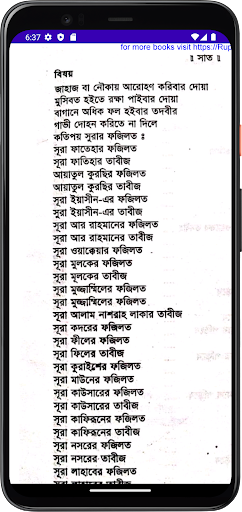 6:37
for more books visit https://Rup
॥ সাত ॥
বিষয়
জাহাজ বা নৌকায় আরোহণ করিবার দোয়া
মুসিবত হইতে রক্ষা পাইবার দোয়া
বাগানে অধিক ফল হইবার তদবীর
গাভী দোহন করিতে না দিলে
কতিপয় সুরার ফজিলত ঃ
সূরা ফাতেহার ফজিলত
সূরা ফাতিহার তাবীজ
আয়াতুল কুরছির ফজিলত
আয়াতুল কুরছির তাবীজ
সূরা ইয়াসীন-এর ফজিলত
সুরা ইয়াসীন-এর তাবীজ
সূরা আর রাহমানের ফজিলত
সূরা আর রাহমানের তাবীজ
সূরা ওয়াক্কেয়ার ফজিলত
সূরা মূলকের ফজিলত
সূরা মূলকের তাবীজ
সূরা মুজ্জাম্মিলের ফজিলত
সূরা মুজ্জাম্মিলের ফজিলত
সূরা আলাম নাশরাহ লাকার তাবীজ
সূরা কদরের ফজিলত
সূরা ফীলের ফজিলত
সূরা ফিলের তাবীজ
সূরা কুরাইশের ফজিলত
সূরা মাউনের ফজিলত
সূরা কাউসারের ফজিলত
সূরা কাউসারের তাবীজ
সূরা কাফিরূনের ফজিলত
সূরা কাফিরূনের তাবীজ
সূরা নসরের ফজিলত
সূরা নসরের তাবীজ
সূরা লাহাবের ফজিলত
সূরা লাহাবের তাবীজ